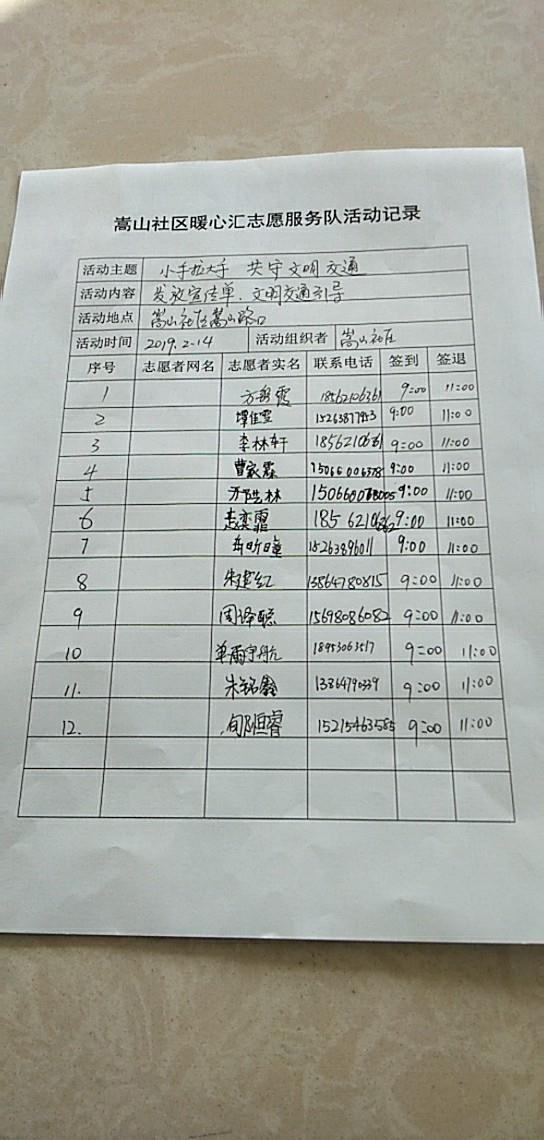 嵩山社区暖心汇志愿服务队活动记录
活动主题 小手拉大手 共守文明交通
活动内容 发放宣传单、文明交通引导
活动地点 嵩山社区嵩山路口
活动时间 2019.2-14 活动组织者 嵩山社区
序号 志愿者网名 志愿者实名 联系电话 签到 签退
1 18562106361 9:00 11:00
2 9:00 11:00
3 李林轩 9:00 11:00
4 曹家霖 9:00 11:00
5 9:00 11:00
6 9:00 11:00
7 15263896011 9:00 11:00
8 朱建红 13864780815 9:00 11:00
9 周译聪 15698086082 9:00 11:00
10 单雨宇航 18953063517 9:00 11:00
11. 朱铭鑫 9:00 11:00
12. 郇恒睿 15215463585 9:00 11:00